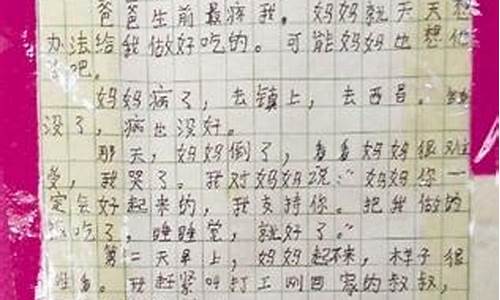 爸爸生前最疼我。妈妈就天天想
办法给我做好吃的。可能妈妈也想他
了吧。
妈妈病了，去镇上，去西昌。
没了，病也没好。
那天，妈妈倒了，看看妈妈很难
受，我哭了。我对妈妈说：“妈妈你一
定会好起来的，我支持你。把我做的
吃了，睡睡觉，就好了。”
第二天早上，妈妈起不来，样子很
我赶紧叫打工刚回家的叔叔，